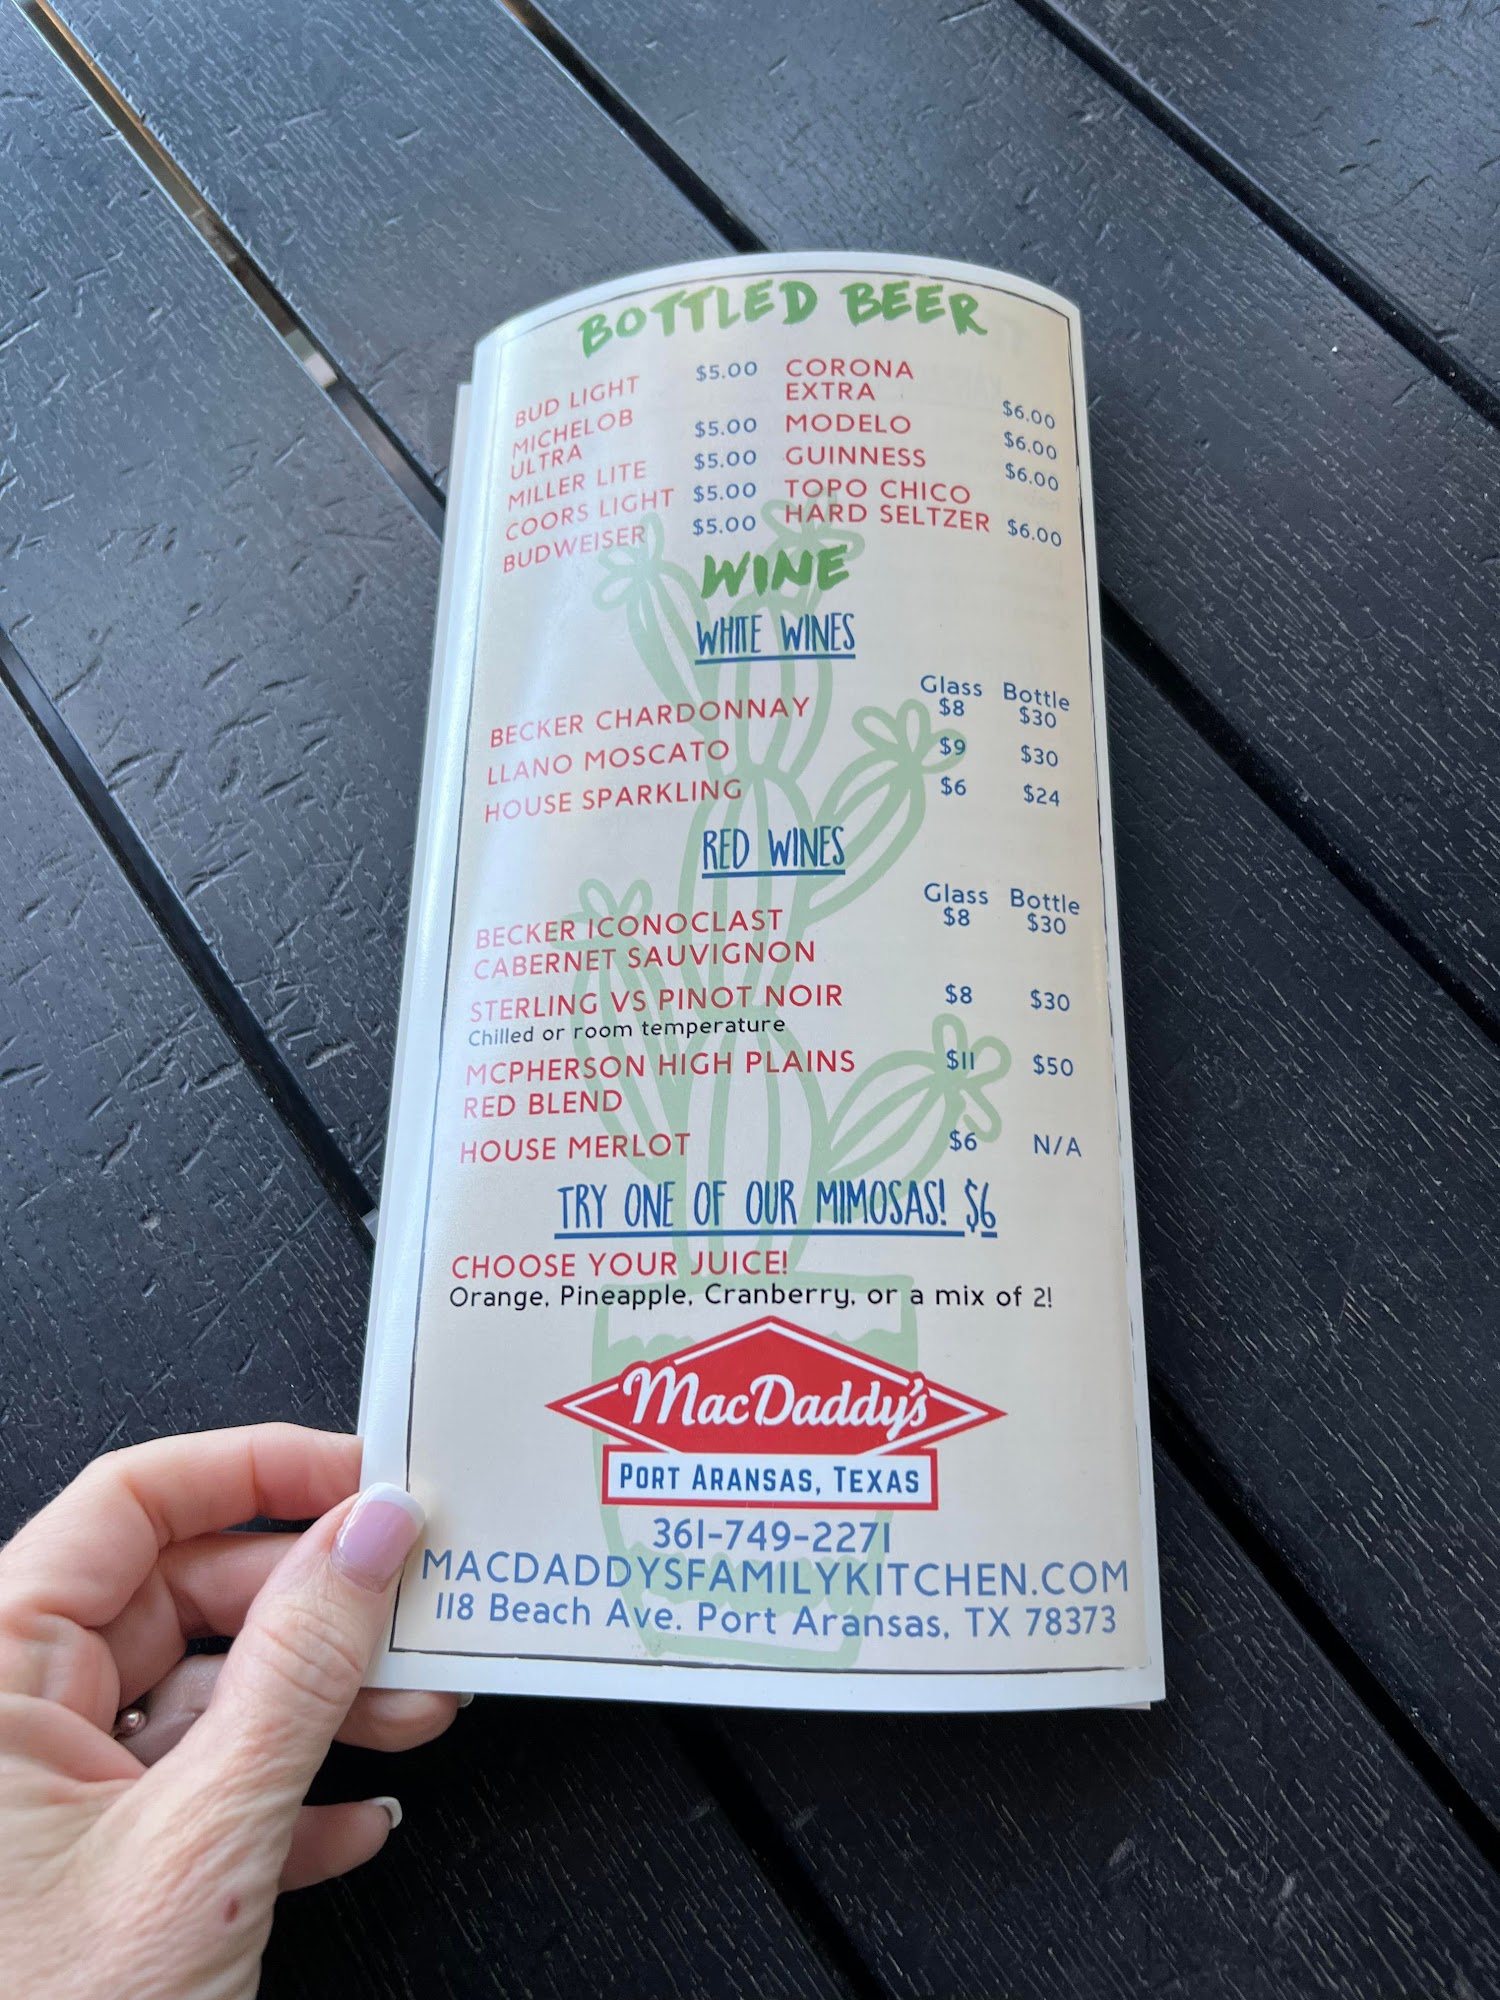 BOTTLED BEER
BUD LIGHT $5.00
MICHELOB
ULTRA $5.00
MILLER LITE $5.00
COORS LIGHT $5.00
BUDWEISER $5.00
CORONA
EXTRA $6.00
MODELO $6.00
GUINNESS $6.00
TOPO CHICO
HARD SELTZER $6.00
WINE
WHITE WINES
Glass Bottle
BECKER CHARDONNAY $8 $30
LLANO MOSCATO $9 $30
HOUSE SPARKLING $6 $24
RED WINES
Glass Bottle
BECKER ICONOCLAST $8 $30
CABERNET SAUVIGNON
STERLING VS PINOT NOIR $8 $30
Chilled or room temperature
MCPHERSON HIGH PLAINS $11 $50
RED BLEND
HOUSE MERLOT $6 N/A
TRY ONE OF OUR MIMOSAS! $6
CHOOSE YOUR JUICE!
Orange, Pineapple, Cranberry, or a mix of 2!
MacDaddy's
PORT ARANSAS, TEXAS
361-749-2271
MACDADDYSFAMILYKITCHEN.COM
118 Beach Ave. Port Aransas, TX 78373